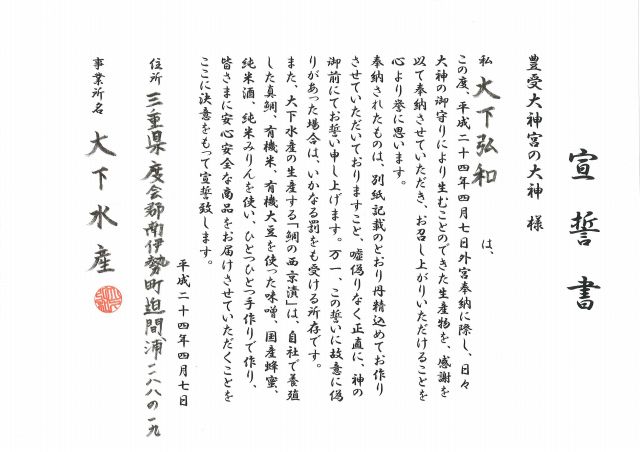 宣誓書
豊受大神宮の大神 様
私 大下弘和 は、
この度、平成二十四年四月七日外宮奉納に際し、日々
大神の御守りにより生むことのできた生産物を、感謝を
以て奉納させていただき、お召し上がりいただけることを
心より誉に思います。
奉納されたものは、別紙記載のとおり丹精込めてお作り
させていただいておりますこと、嘘偽りなく正直に、神の
御前にてお誓い申し上げます。万一、この誓いに故意に偽
りがあった場合は、いかなる罰をも受ける所存です。
また、大下水産の生産する「鯛の西京漬」は、自社で養殖
した真鯛、有機米、有機大豆を使った味噌、国産蜂蜜、
純米酒、純米みりんを使い、ひとつひとつ手作りで作り、
皆さまに安心安全な商品をお届けさせていただくことを
ここに決意をもって宣誓致します。
平成二十四年四月七日
住所 三重県度会郡南伊勢町迫間浦一二八八の一九
事業所名 大下水産